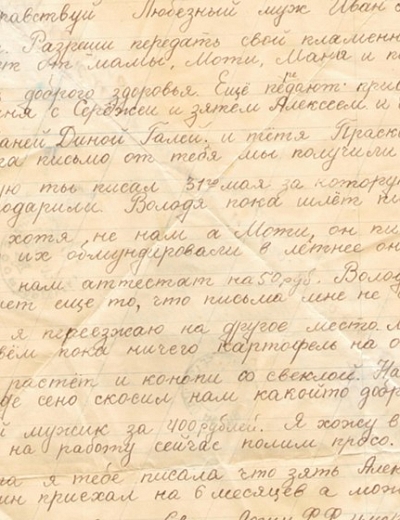 равствуй Любезный муж Иван
Разреши передать свой пламенн
т от мамы, Моти, Мани и п
доброго здоровья. Ещё педают при
ня с Сергжеи и зятем Алексеем. и
аней Диной Галси. и тётя Праско
га письмо от тебя мы получили
ю ты писал 31го мая за котору
одарили. Володя пока шлёт пи
хотя не нам а Моти, он пи
их обмундировали в летнее он
нам аттестат на 50 руб. Воло
ет еще то, что письма мне не
я переезжаю на другое место.
вём пока ничего картофель на о
растёт и конопи со свеклой. На
де сено скосил нам какойто добр
й мужик за 400 рублей. Я хожу в
на работу сейчас полим просо.
а я тебе писала что зять Алек
ин приехал на 6 месяцев а мож